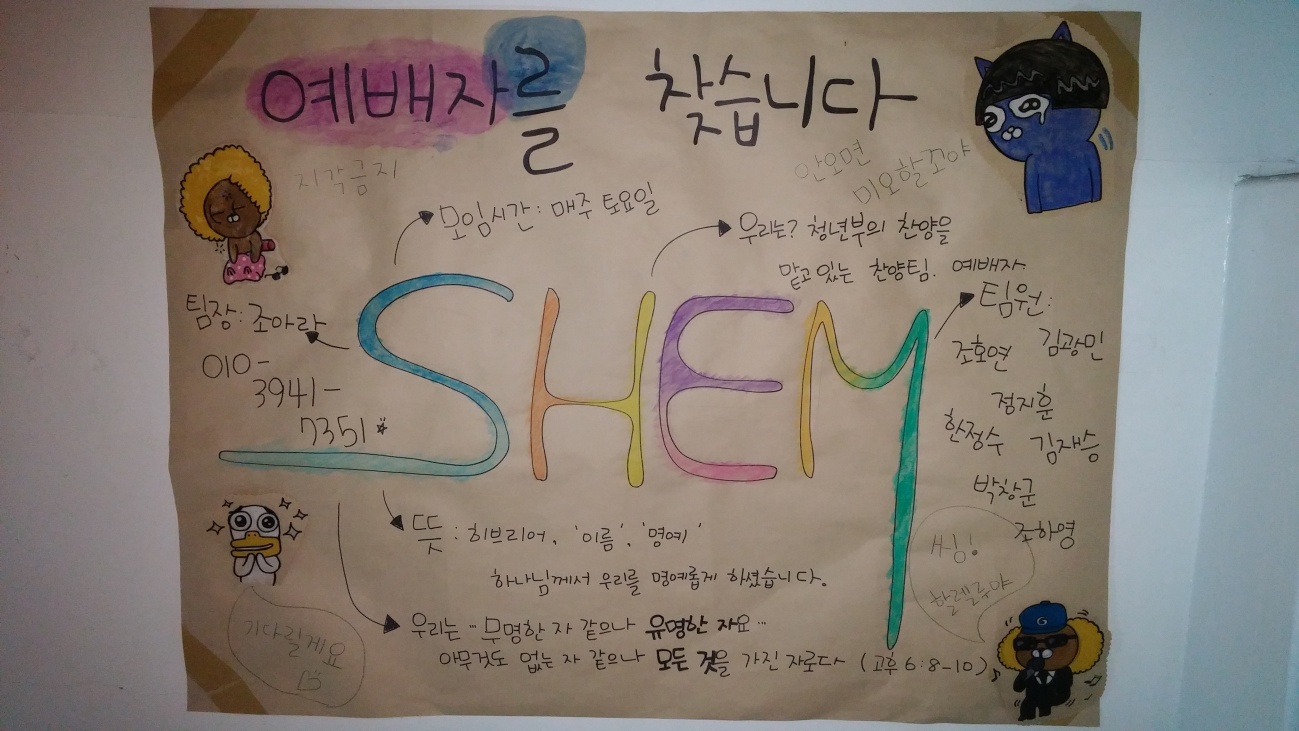 예배자를 찾습니다
지각금지
안오면
미오할꼬야
모임시간: 매주 토요일
우리는? 청년부의 찬양을
맡고 있는 찬양팀. 예배자.
팀장: 조아라
010-
3941-
7351
SHEM
팀원:
조호연 김광민
정지훈
한정수 김재승
박창군
조하영
뜻: 히브리어, '이름', '명예'
하나님께서 우리를 명예롭게 하셨습니다.
우리는… 무명한 자 같으나 유명한 자요…
아무것도 없는 자 같으나 모든 것을 가진 자로다 (고후 6:8-10)
기다릴게요
씽!
할렐루야
G